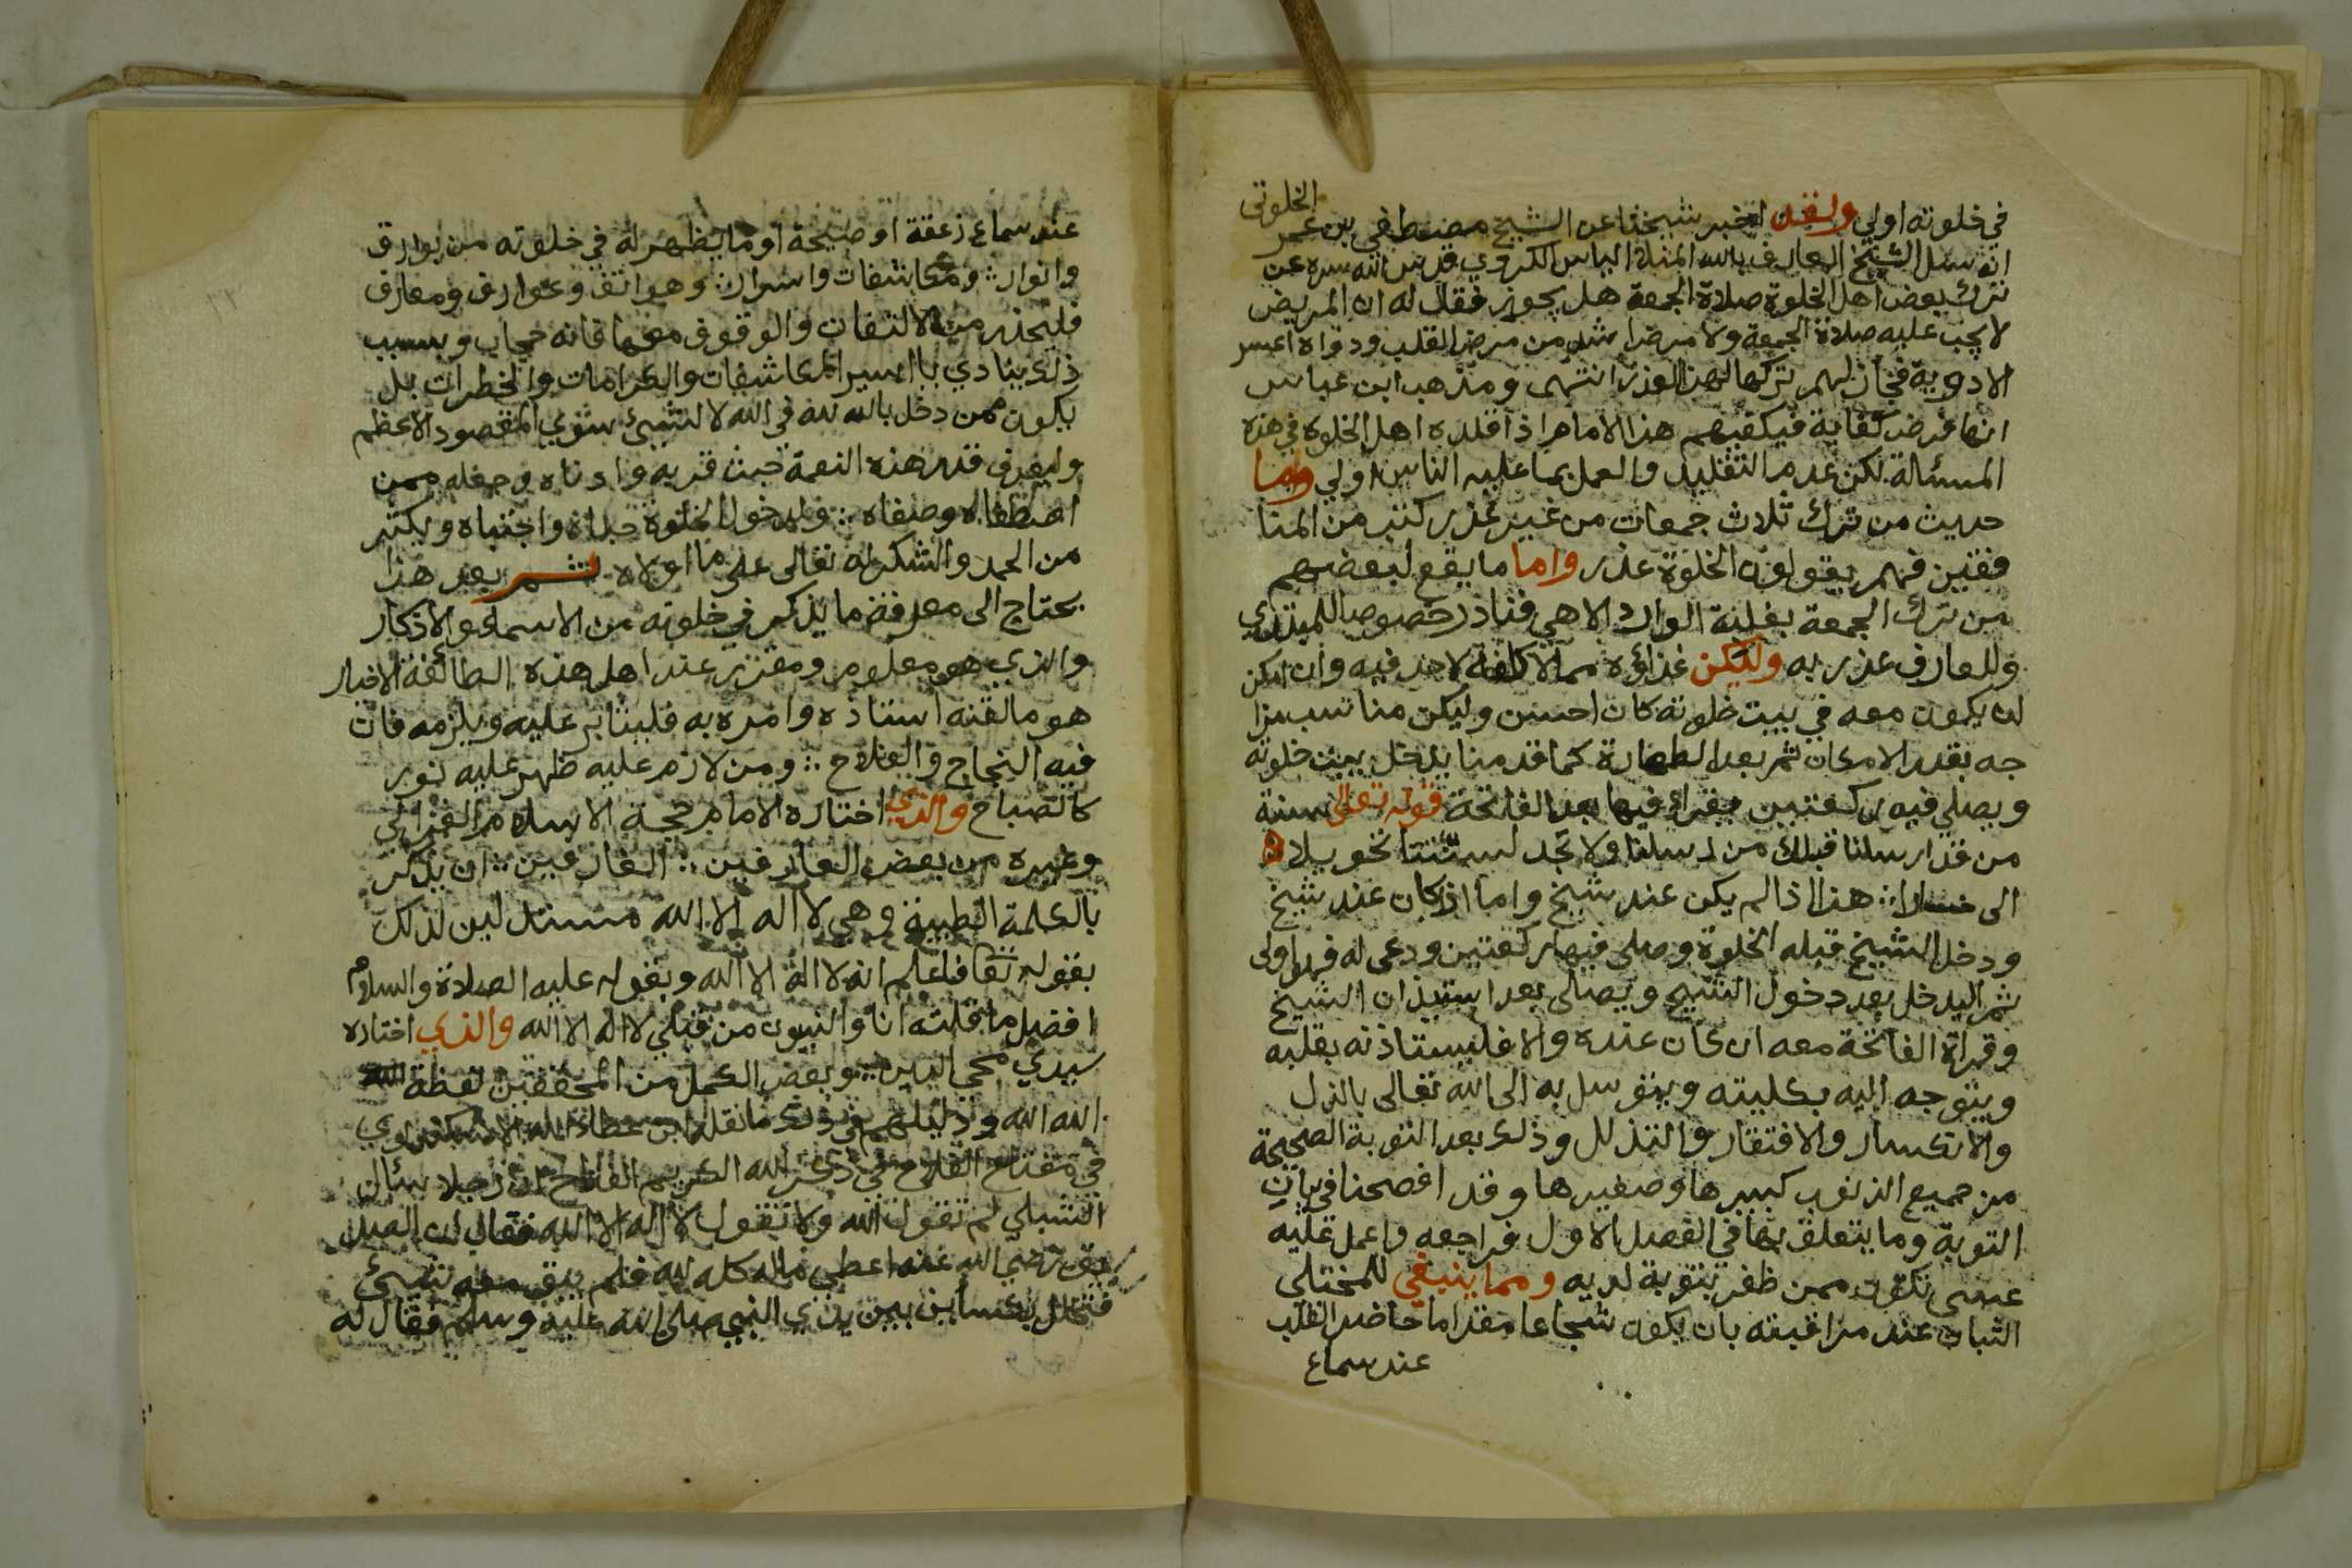 الخلوتي
في خلوته اولي ولقد اخبر شيخنا عن الشيخ مصطفي بن عمر
انه سئل الشيخ العارف بالله المنلا الياس الكردي قدس الله سره عن
ترك بعض اهل الخلوة صلاة الجمعة هل يجوز فقال له ان المريض
لا يجب عليه صلاة الجمعة ولا مرض اشد من مرض القلب ودواه اعسر
الادوية فجاز لهم تركها لهذا العذر انتهى ومذهب ابن عباس
انها فرض كفاية فيكفيهم هذا الامام اذا قلده اهل الخلوة في هذه
المسئالة لكن عدم التقليد والعمل بما عليه الناس اولي واما
حديث من ترك ثلاث جمعات من غير عذر كتب من المنا
فقين فهم يقولون الخلوة عذر واما ما يقع لبعضهم
من ترك الجمعة بغلبة الوارد الاهي فنادر خصوصا للمبتدي
وللعارف عذر به وليكن غذاؤه مما لا كلفة لاحد فيه وان امكن
ان يكون معه في بيت خلوته كان احسن وليكن مناسب مزا
جه بقدر الامكان ثم بعد الطهارة كما قدمنا يدخل بيت خلوته
ويصلي فيه ركعتين يقراء فيها بعد الفاتحة قوله تعالى سنة
من قد ارسلنا قبلك من رسلنا ولا تجد لسنتنا تحويلا
الى هذا اذا لم يكن عند شيخ واما اذا كان عند شيخ
ودخل الشيخ قبله الخلوة وصلى فيها ركعتين ودعى له فهو اولى
ثم اليدخل بعد دخول الشيخ ويصلى بعد استيذان الشيخ
وقراة الفاتحة معه ان كان عنده والا فليستاذنه بقلبه
ويتوجه اليه بكليته ويتوسل به الى الله تعالى بالذل
والانكسار والافتقار والتذلل وذلك بعد التوبة الصحيحة
من جميع الذنوب كبيرها وصغيرها وقد افصحنا في بيان
التوبة وما يتعلق بها في الفصل الاول فراجعه واعمل عليه
عسى تكون ممن ظفر بتوبة لديه ومما ينبغي للمختلي
الثبات عند مراقبته بان يكون شجاعا مقداما حاضر القلب
عند سماع
عند سماع زعقة او صيحة او ما يظهر له في خلوته من بوارق
وانوار ومكاشفات واسرار وهواتف وعوارف ومعارف
فليحذر من الالتفات والوقوف معها فانه حجاب وبسبب
ذلك ينادي باسير المكاشفات والكرامات والخطرات بل
يكون ممن دخل بالله لله في الله لا لشيئ سوي المقصود الاعظم
وليعرف قدر هذه النعمة حيث قربه وادناه وجعله ممن
اصطفاه وصفاه ولدخول الخلوة حباه واجتباه ويكثر
من الحمد والشكر له تعالى على ما اولاه ثم بعد هذا
يحتاج الى معرفة ما يذكر في خلوته من الاسماء والاذكار
والذي هو معلوم ومقرر عند اهل هذه الطائفة الاخيار
هو ما لقنه استاذه وامره به فليثابر عليه ويلزمه فان
فيه النجاح والفلاح ومن لازم عليه ظهر عليه نور
كالصباح والذي اختاره الامام حجة الاسلام الغزالي
وغيره من بعض العارفين العارفين ان يذكر
بالكلمة الطيبة وهي لا اله الا الله مستدلين لذلك
بقوله تعا فاعلم انه لا اله الا الله وبقوله عليه الصلاة والسلام
افضل ما قلته انا والنبيون من قبلي لا اله الا الله والذي اختاره
سيدي محي الدين وبعض الكمل من المحققين لفظة الله
الله الله ودليلهم في ذلك ما نقله ابن عطاء الله الاسكندري
في مفتاح الفلاح في ذكر الله الكريم الفتاح ان رجلا سئال
الشبلي لم تقول الله ولا تقول لا اله الا الله فقال لان الصد
يق رضي الله عنه اعطي ماله كله لله فلم يبق معه شيئ
فتخلل بكساء بين يدي النبي صلى الله عليه وسلم فقال له